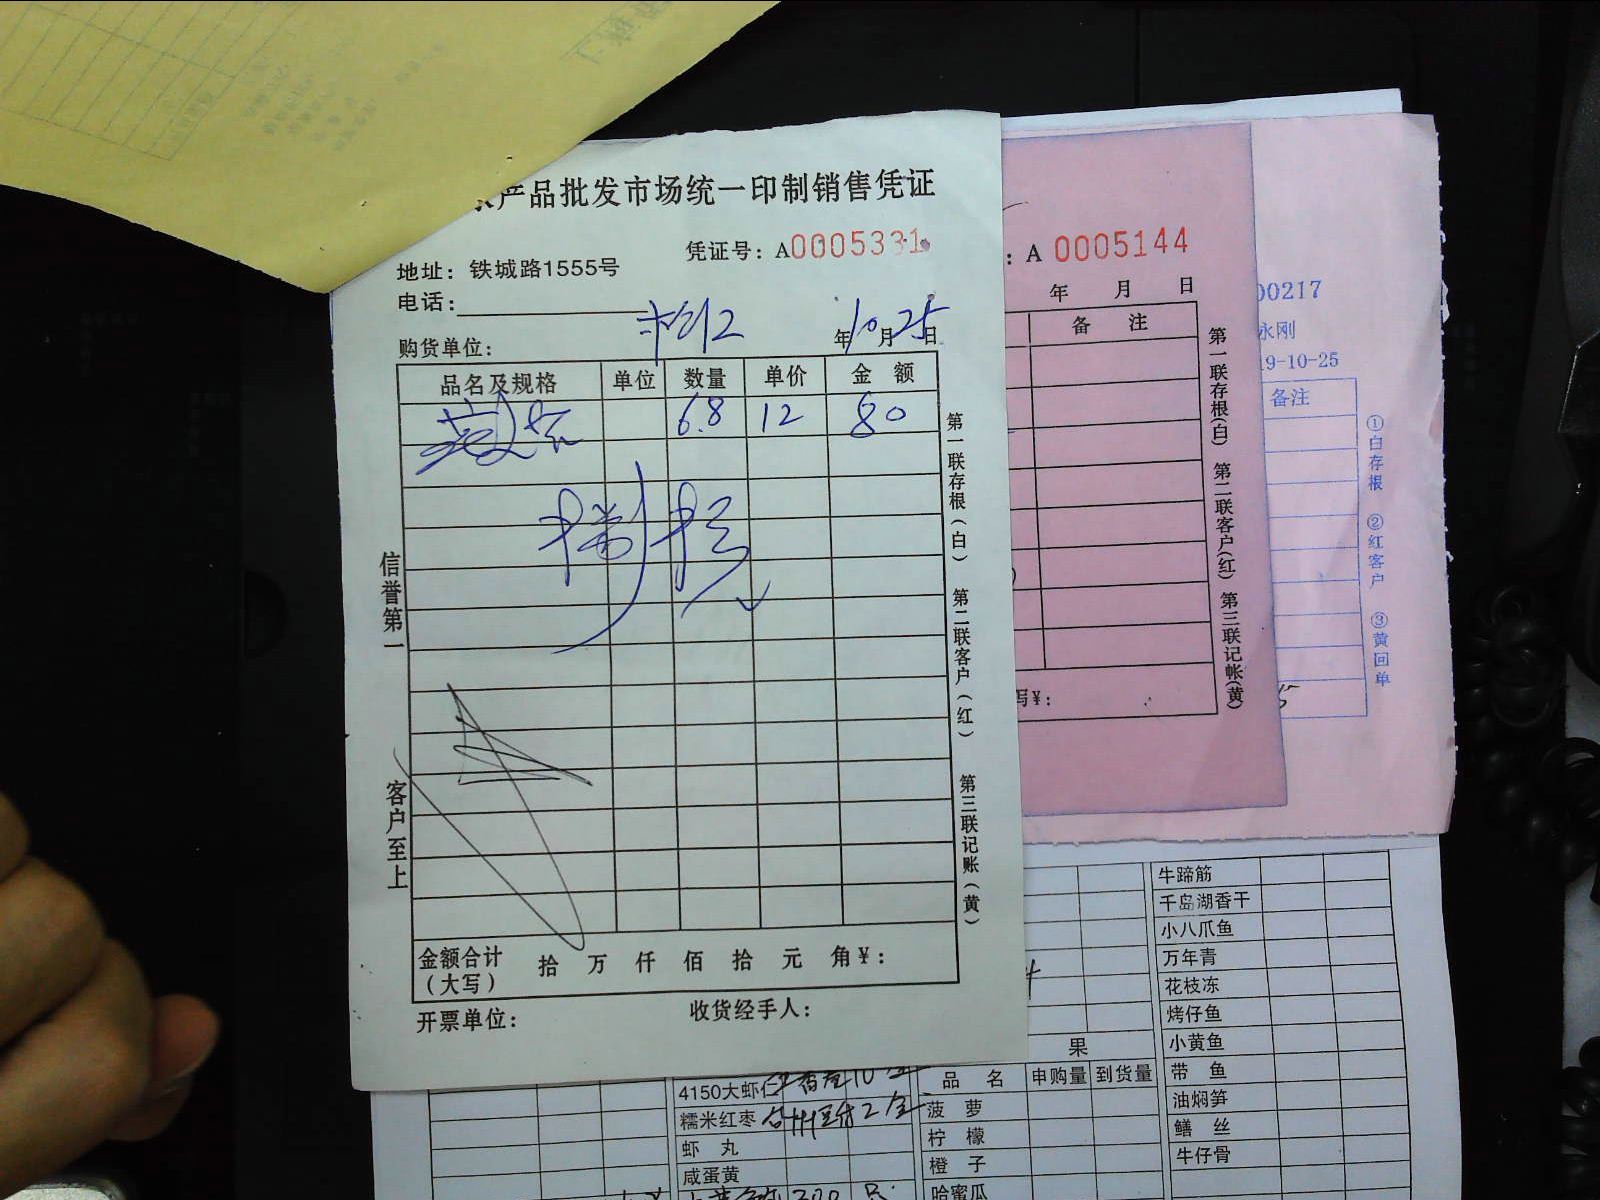 产品批发市场统一印制销售凭证
凭证号：A0005331
地址：铁城路1555号
电话：
购货单位：
年10月25日
品名及规格 单位 数量 单价 金额
6.8 12 80
信誉第一
客户至上
第一联存根（白） 第二联客户（红） 第三联记账（黄）
金额合计（大写） 拾 万 仟 佰 拾 元 角￥：
开票单位： 收货经手人：
：A 0005144
年 月 日
备 注
第一联存根(白) 第二联客户(红) 第三联记帐(黄)
写￥：
00217
永刚
19-10-25
备注
①白存根 ②红客户 ③黄回单
牛蹄筋
千岛湖香干
小八爪鱼
万年青
花枝冻
烤仔鱼
小黄鱼
带 鱼
油焖笋
鳝 丝
牛仔骨
果
品 名 申购量 到货量
菠 萝
柠 檬
橙 子
哈蜜瓜
4150大虾仁
糯米红枣
虾 丸
咸蛋黄